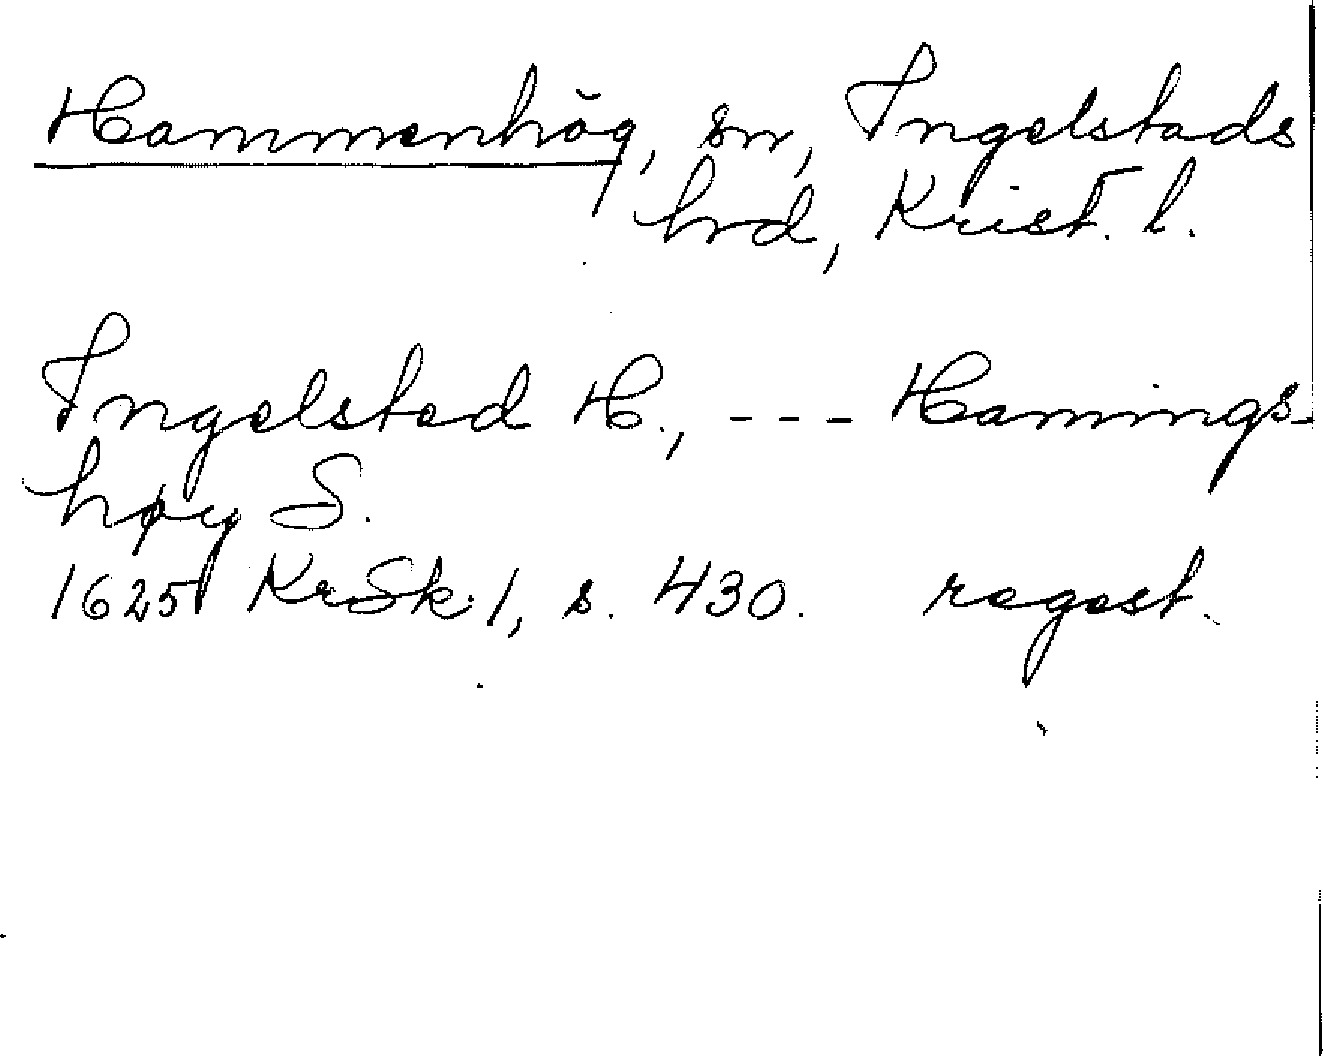 Hammenhög, sn, Ingelstads
hrd, Krist. l.
Ingelsted H., --- Hamings-
høy S.
1625 KrSk. 1, s. 430. regest.